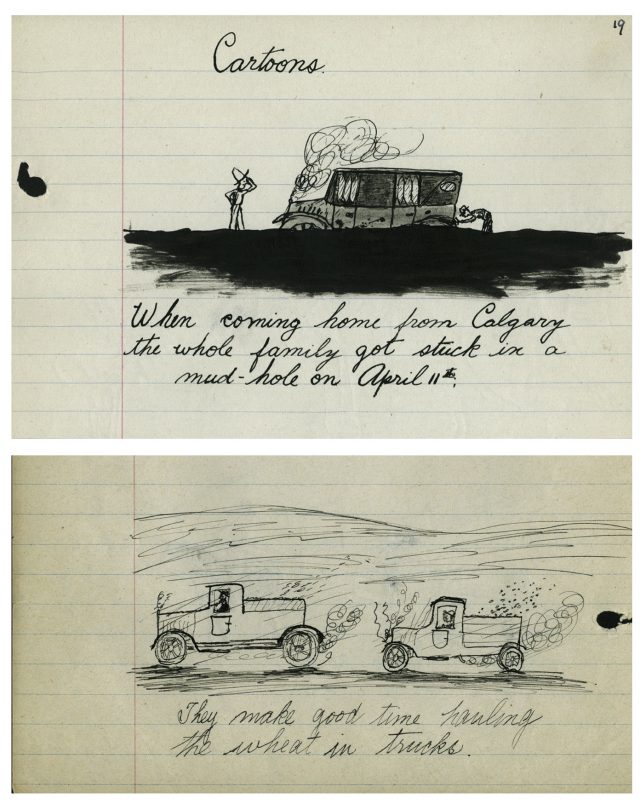 19
Cartoons.
When coming home from Calgary
the whole family got stuck in a
mud-hole on April 11th.
They make good time hauling
the wheat in trucks.